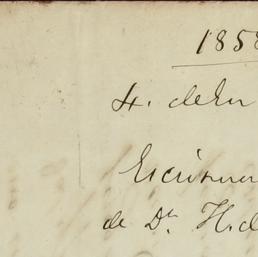 1858
4. de En
Escritura
de D.ⁿ H.d